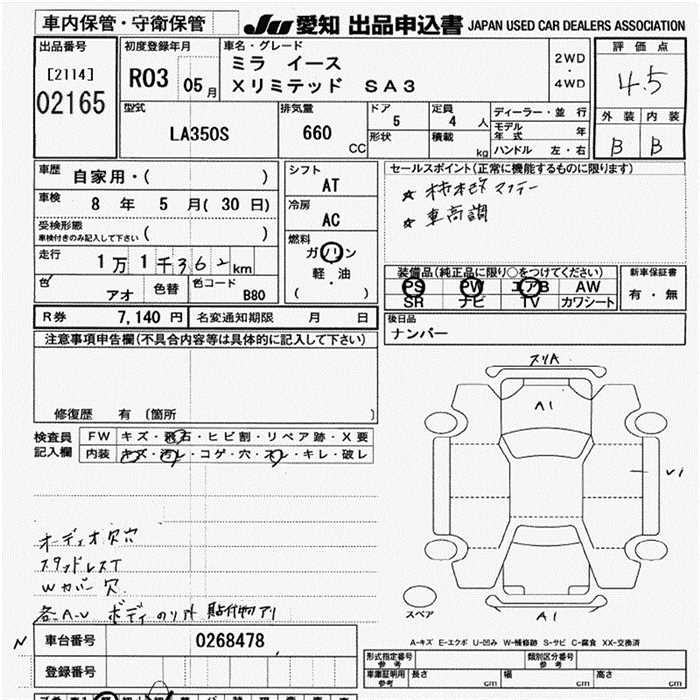 車内保管・守衛保管
JU 愛知 出品申込書 JAPAN USED CAR DEALERS ASSOCIATION
出品番号 [2114] 02165
初度登録年月 R03 05月
車名・グレード
ミラ イース
Xリミテッド SA3
2WD・4WD
評価点 4.5
外装 内装
B B
型式 LA350S
排気量 660 CC
ドア 5
形状
定員 4 人
積載 kg
ディーラー・並行
モデル年式 年
ハンドル 左・右
車歴 自家用・( )
車検 8 年 5 月( 30 日)
受検形態 ( )
車検付きのみ記入して下さい
走行 1万1千362km
色 アオ 色替 色コード B80
シフト AT
冷房 AC
燃料 ガソリン
軽・油
( )
セールスポイント(正常に機能するものに限ります)
☆
☆ 車高調
装備品(純正品に限り○をつけてください)
PS PW エアB AW
SR ナビ TV カワシート
新車保証書
有・無
R券 7,140 円 名変通知期限 月 日
後日品
ナンバー
注意事項申告欄(不具合内容等は具体的に記入して下さい)
修復歴 有 〔箇所 〕
検査員記入欄
FW キズ・飛石・ヒビ割・リペア跡・X要
内装 キズ・汚レ・コゲ・穴・スレ・キレ・破レ
オーディオ欠穴
スタッドレスT
Wカバー欠
各A-U ボディのり汁 貼付物アリ
スリA
A1
U1
A1
スペア
A-キズ E-エクボ U-凹み W-補修跡 S-サビ C-腐食 XX-交換済
N 車台番号 0268478
登録番号
形式指定番号 参考
類別区分番号 参考
車庫証明用 参考 長さ cm 幅 cm 高さ cm